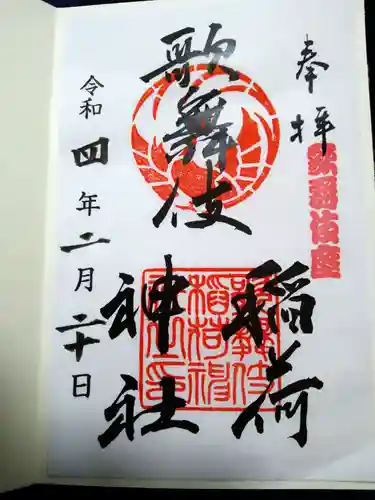 奉拝
歌舞伎座
歌舞伎
稲荷
神社
令和四年二月二十日